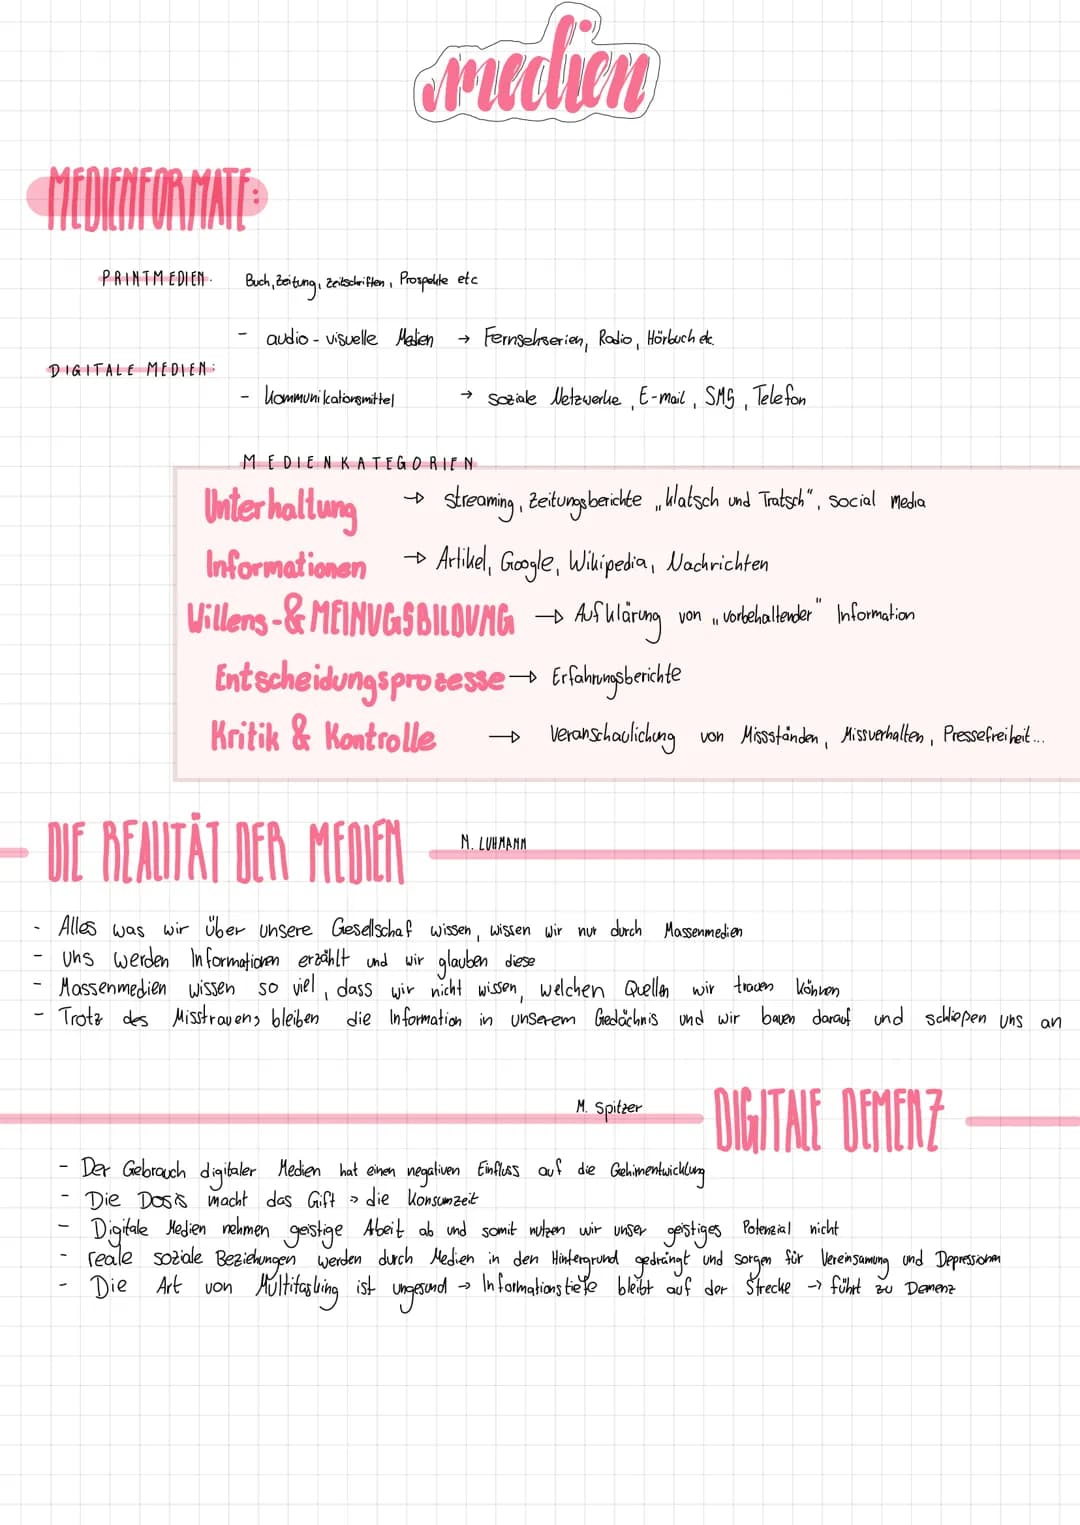 medien
MEDIENFORMATE:
PRINTMEDIEN. Buch, Zeitung, Zeitschriften, Prospekte etc
- audio-visuelle Medien → Fernsehserien, Radio, Hörbuch etc.
DIGITALE MEDIEN:
- Kommunikationsmittel → soziale Netzwerke, E-mail, SMS, Telefon
MEDIENKATEGORIEN
Unterhaltung → streaming, Zeitungsberichte „Klatsch und Tratsch“, social Media
Informationen → Artikel, Google, Wikipedia, Nachrichten
Willens-& MEINUGSBILDUNG → Aufklärung von „vorbehaltender" Information
Entscheidungsprozesse → Erfahrungsberichte
Kritik & Kontrolle → Veranschaulichung von Missständen, Missverhalten, Pressefreiheit...
DIE REALITÄT DER MEDIEN N. LUHMANN
- Alles was wir über unsere Gesellschaf wissen, wissen wir nur durch Massenmedien
- uns werden Informationen erzählt und wir glauben diese
- Massenmedien wissen so viel, dass wir nicht wissen, welchen Quellen wir trauen können
- Trotz des Misstrauens bleiben die Information in unserem Gedächnis und wir bauen darauf und schließen uns an
M. Spitzer DIGITALE DEMENZ
- Der Gebrauch digitaler Medien hat einen negativen Einfluss auf die Gehirnentwicklung
- Die Dosis macht das Gift > die Konsumzeit
- Digitale Medien nehmen geistige Abeit ab und somit nutzen wir unser geistiges Potenzial nicht
- reale soziale Beziehungen werden durch Medien in den Hintergrund gedrängt und sorgen für Vereinsamung und Depressionen
- Die Art von Multitasking ist ungesund → Informationstiefe bleibt auf der Strecke → führt zu Demenz